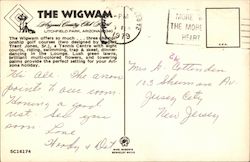 THE WIGWAM
Wigwam Country Club
LITCHFIELD PARK, ARIZONA 85340
The Wigwam offers so much ... three championship golf courses (two designed by Robert Trent Jones, Sr.), a Tennis Centre with eight courts, riding, swimming, trap & skeet, dinner-dancing in the evening. Lush green lawns, brilliant multi-colored flowers, and towering palms provide the perfect setting for your Arizona holiday.
PM
1979
MORE
THE MORE
Hi All. The arrow
points to our room.
Having a good
rest. See you
soon. Love
Mrs A.
113 Sherman Pl
Jersey City
New Jersey
SC14174